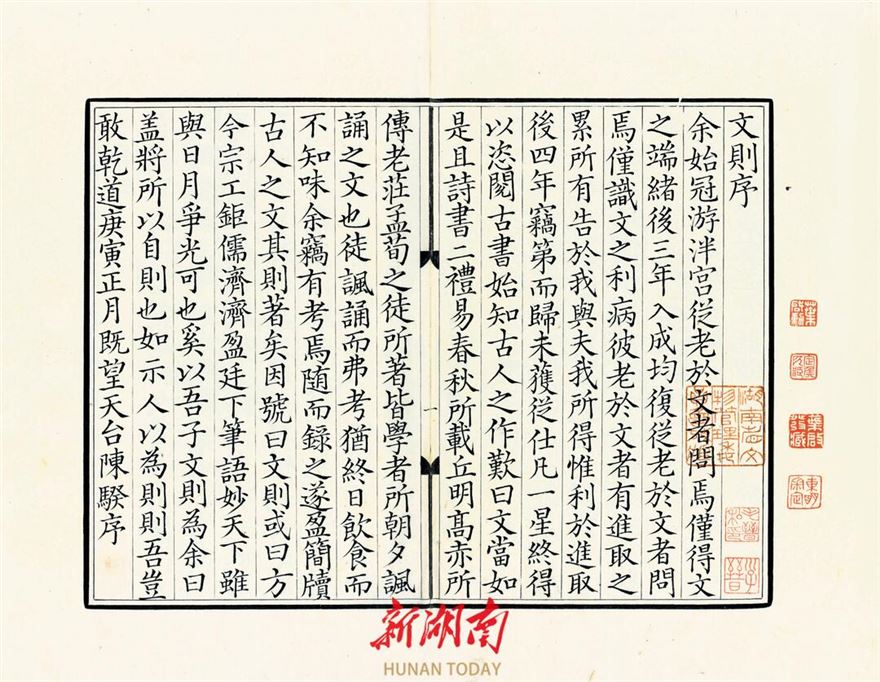 文則序
余始冠游泮宫從老於文者問焉僅得文
之端緒後三年入成均復從老於文者問
焉僅識文之利病彼老於文者有進取之
累所有告於我與夫我所得惟利於進取
後四年竊第而歸未獲從仕凡一星終得
以恣閱古書始知古人之作歎曰文當如
是且詩書二禮易春秋所載丘明髙赤所
一
傳老莊孟荀之徒所著皆學者所朝夕諷
誦之文也徒諷誦而弗考猶終日飲食而
不知味余竊有考焉随而録之遂盈簡牘
古人之文其則著矣因號曰文則或曰方
今宗工鉅儒濟濟盈廷下筆語妙天下雖
與日月爭光可也奚以吾子文則為余曰
盖將所以自則也如示人以為則則吾豈
敢乾道庚寅正月既望天台陳騤序
新湖南
HUNAN TODAY